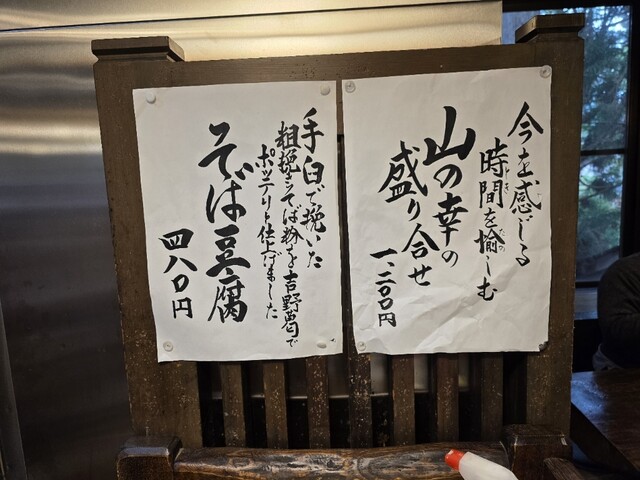 今を感じる
時間を愉しむ
とき
たの
山の幸の
盛り合せ
一、二〇〇円
手臼で挽いた
粗挽きそば粉を吉野葛で
ポッテリと仕上げました
そば豆腐
四八〇円